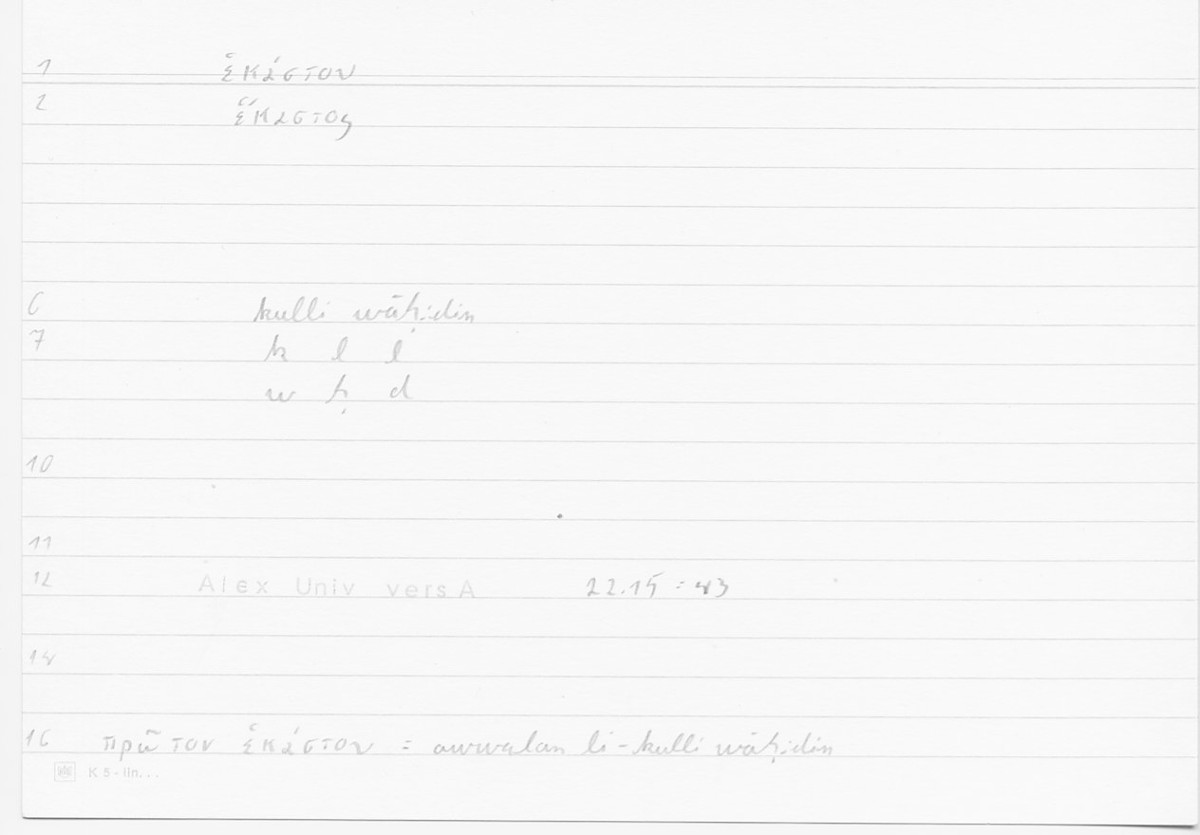 1 ἑκάστου
2 ἕκαστος
6 kulli wāḥidin
7 k l l
w ḥ d
10
11
12 Alex Univ vers A 22.15 = 43
14
16 πρῶτον ἑκάστου = awwalan li-kulli wāḥidin
K 5 - lin...